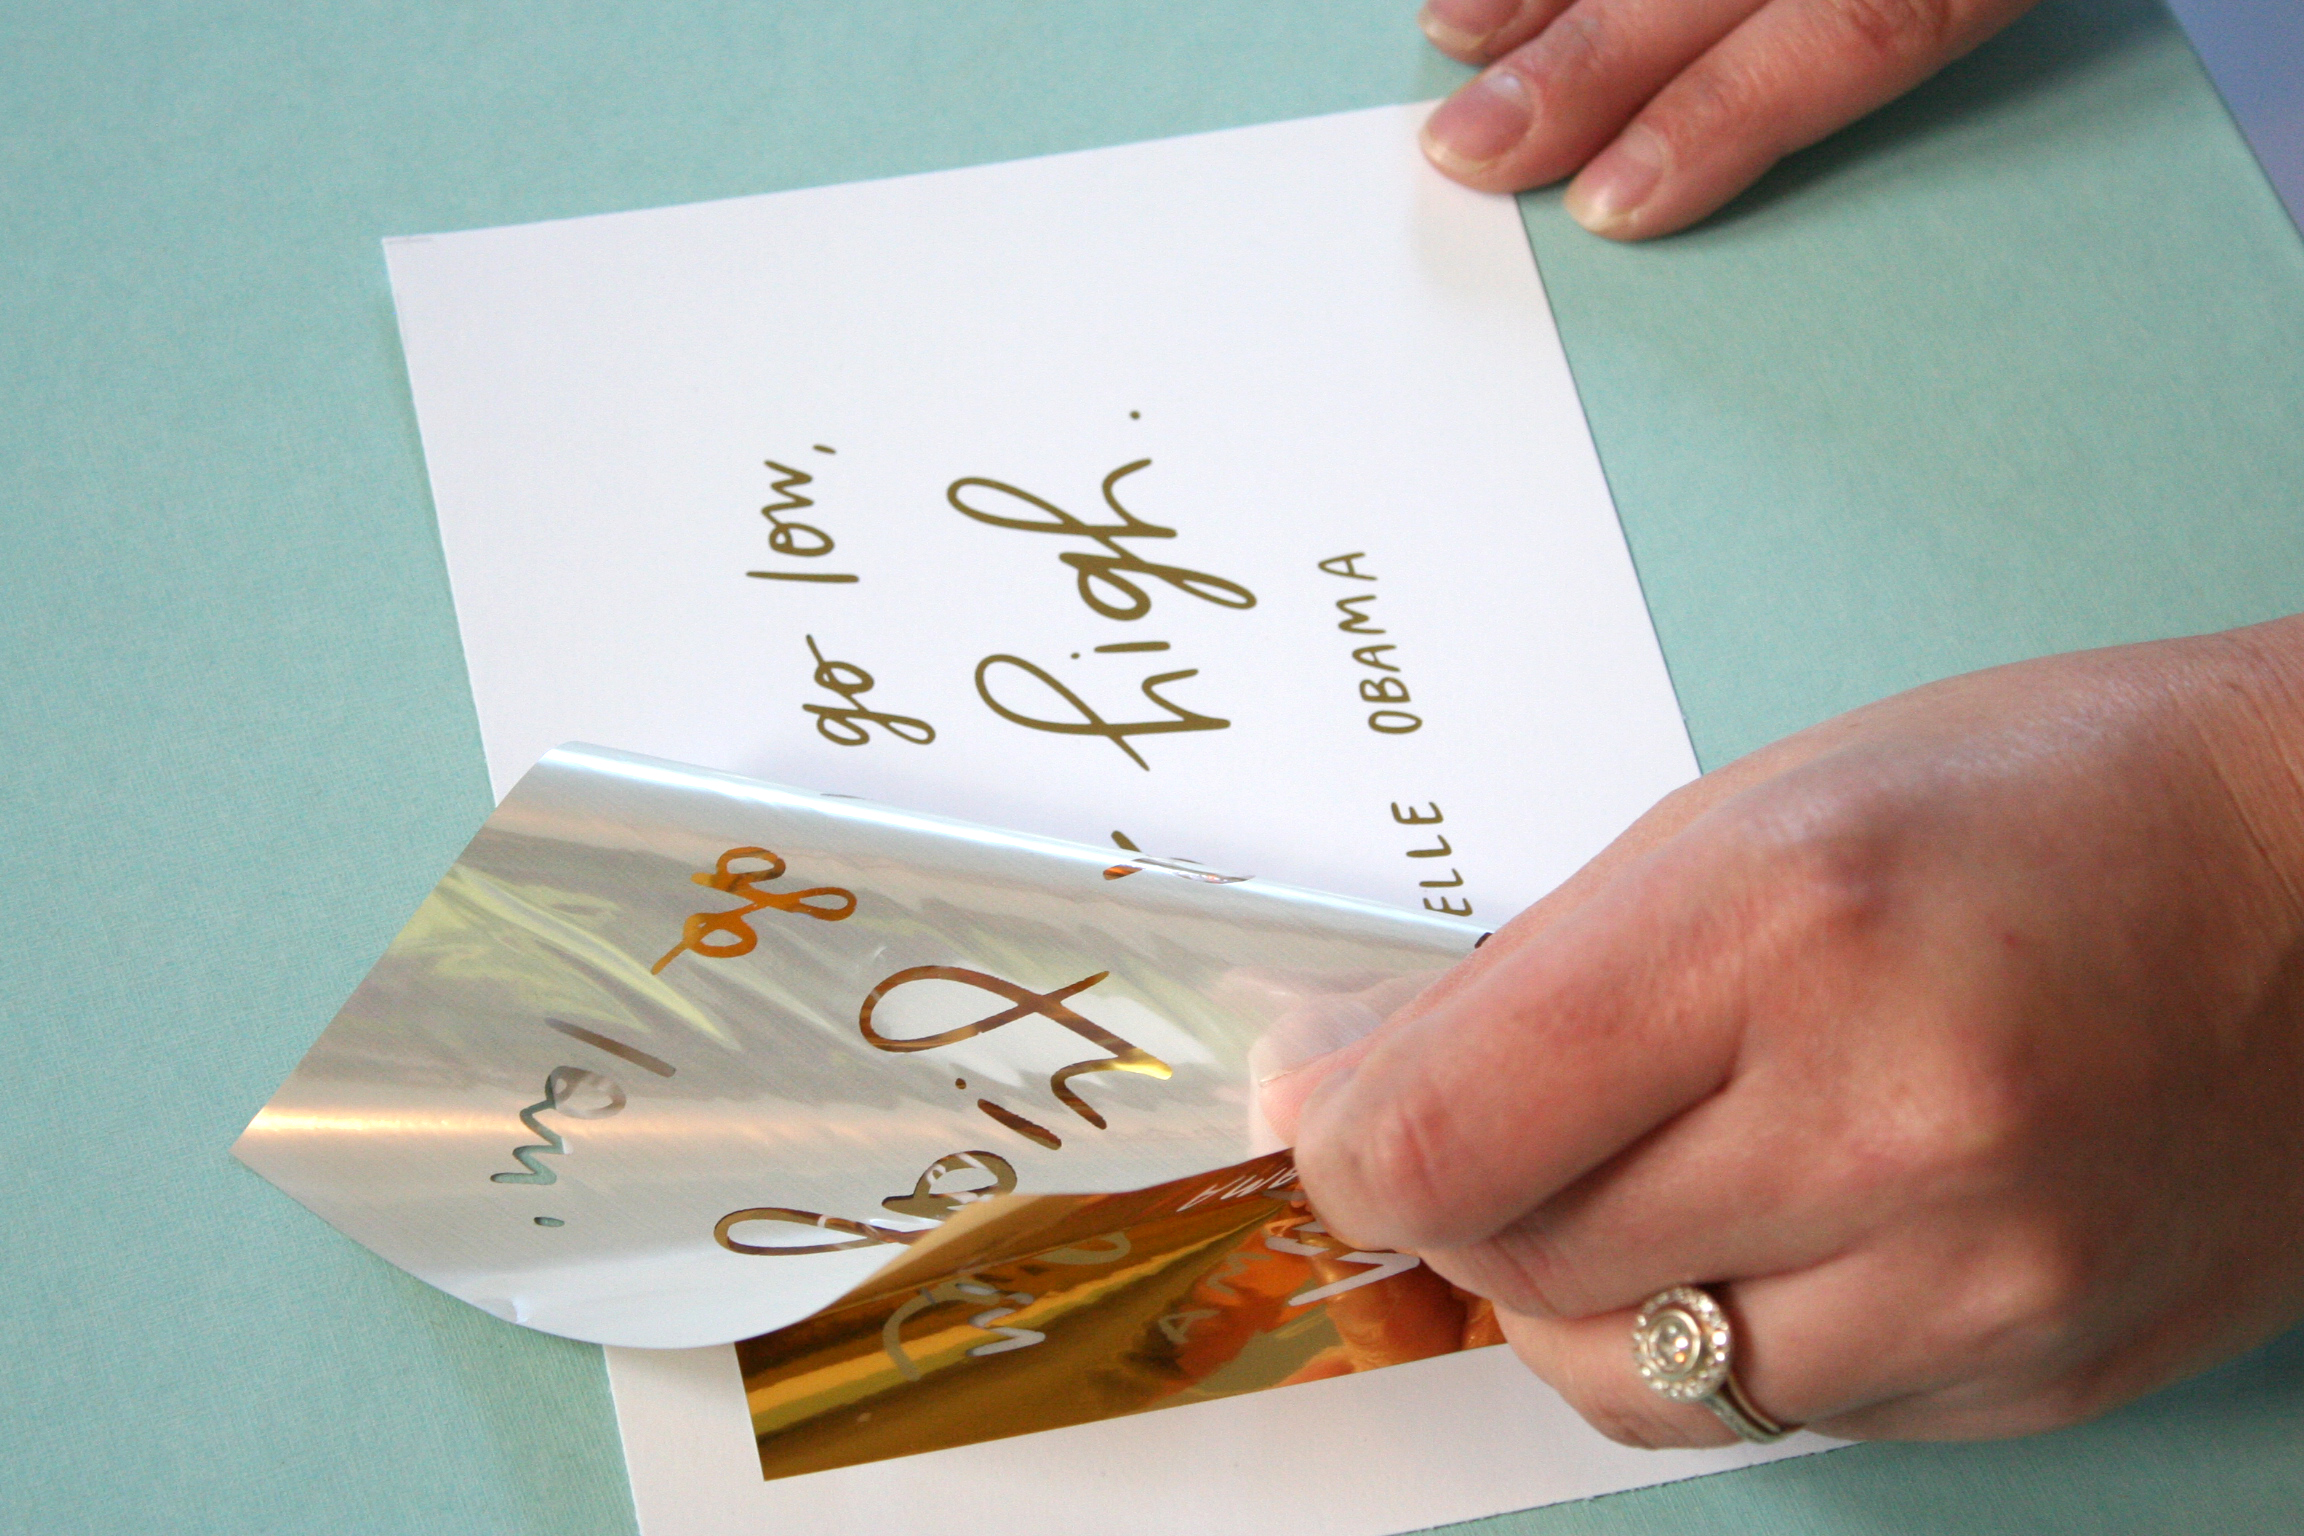 go low,
high.
ELLE OBAMA